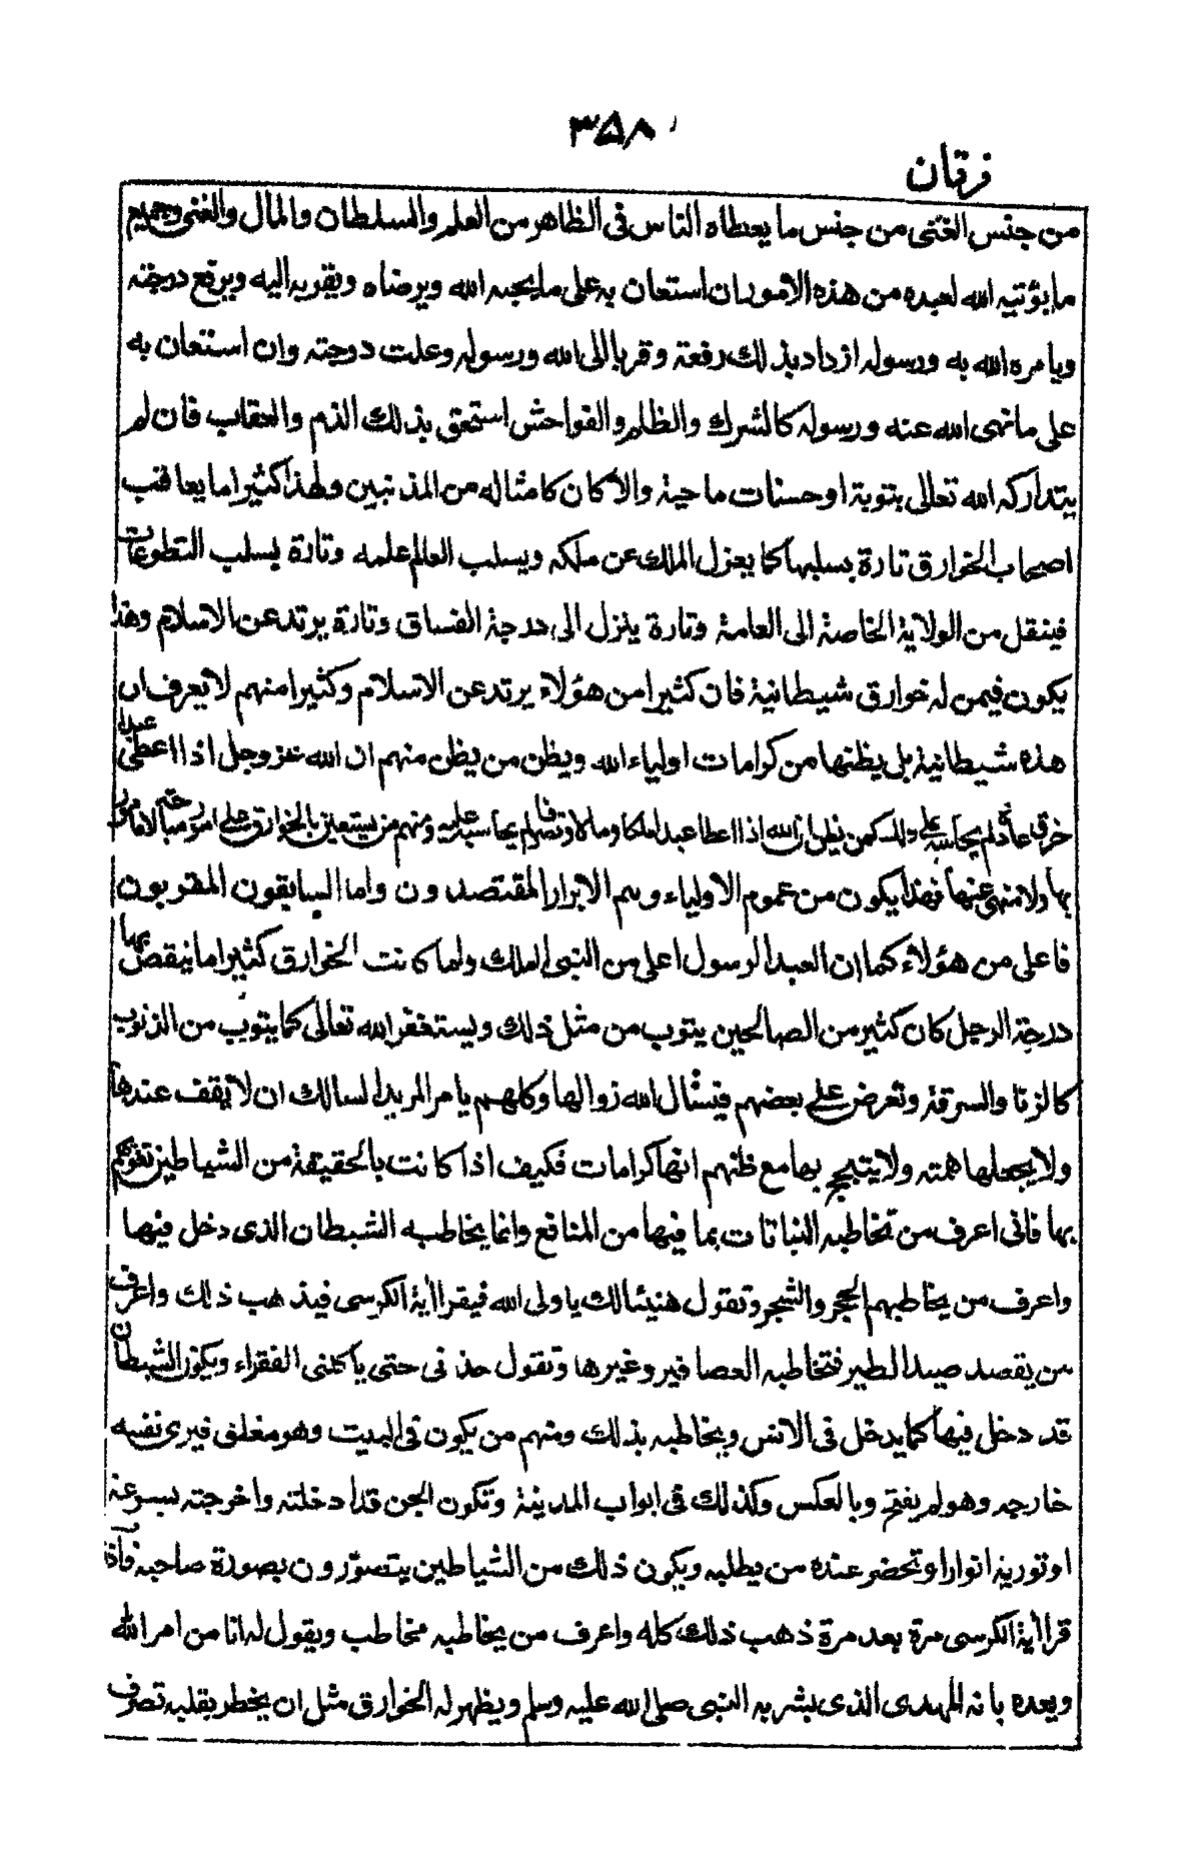 ٣٥٨
فرقان
من جنس الغنى من جنس ما يعطاه الناس فى الظاهر من العلم والسلطان والمال والغنى وجميع
ما يؤتيه الله لعبده من هذه الامور ان استعان به على ما يحبه الله ويرضاه ويقربه اليه ويرفع درجته
ويامره الله به ورسوله ازداد بذلك رفعة وقربا الى الله ورسوله وعلت درجته وان استعان به
على ما نهى الله عنه ورسوله كالشرك والظلم والفواحش استحق بذلك الذم والعقاب فان لم
يتداركه الله تعالى بتوبة او حسنات ماحية والا كان كامثاله من المذنبين ولهذا كثيرا ما يعاقب
اصحاب الخوارق تارة بسلبها كما يعزل الملك عن ملكه ويسلب العالم علمه وتارة يسلب التطوعات
فينقل من الولاية الخاصة الى العامة وتارة ينزل الى درجة الفساق وتارة يرتد عن الاسلام وهذا
يكون فيمن له خوارق شيطانية فان كثيرا من هؤلاء يرتد عن الاسلام وكثيرا منهم لا يعرف ان
هذه شيطانية بل يظنها من كرامات اولياء الله ويظن من يظن منهم ان الله عز وجل اذا اعطى عبدا
خرق عادة لم يحاسبه على ذلك كمن يظن ان الله اذا اعطا عبدا ملكا ومالا وتصرفا لم يحاسبه عليه ومنهم من يستعين بالخوارق على امور مباحة لا مامور
بها ولا منهى عنها فهذا يكون من عموم الاولياء وهم الابرار المقتصدون واما السابقون المقربون
فاعلى من هؤلاء كما ان العبد الرسول اعلى من النبى الملك ولما كانت الخوارق كثيرا ما ينقص بها
درجة الرجل كان كثير من الصالحين يتوب من مثل ذلك ويستغفر الله تعالى كما يتوب من الذنوب
كالزنا والسرقة وتعرض على بعضهم فيسأل الله زوالها وكلهم يامر المريد السالك ان لا يقف عندها
ولا يجعلها همته ولا يتبجح بها مع ظنهم انها كرامات فكيف اذا كانت بالحقيقة من الشياطين تغويهم
بها فانى اعرف من تخاطبه النباتات بما فيها من المنافع وانما يخاطبه الشيطان الذى دخل فيها
واعرف من يخاطبهم الحجر والشجر وتقول هنيئا لك يا ولى الله فيقرا اٰية الكرسى فيذهب ذلك واعرف
من يقصد صيد الطير فتخاطبه العصافير وغيرها وتقول خذنى حتى ياكلنى الفقراء ويكون الشيطان
قد دخل فيها كما يدخل فى الانس ويخاطبه بذلك ومنهم من يكون فى البيت وهو مغلق فيرى نفسه
خارجه وهو لم يفتح وبالعكس وكذلك فى ابواب المدينة وتكون الجن قد ادخلته واخرجته بسرعة
او توريه انوارا او تحضر عنده من يطلبه ويكون ذلك من الشياطين يتصورون بصورة صاحبه فاذا
قرا اٰية الكرسى مرة بعد مرة ذهب ذلك كله واعرف من يخاطبه مخاطب ويقول له انا من امر الله
ويعده بانه المهدى الذى بشر به النبى صلى الله عليه وسلم ويظهر له الخوارق مثل ان يخطر بقلبه تصرف